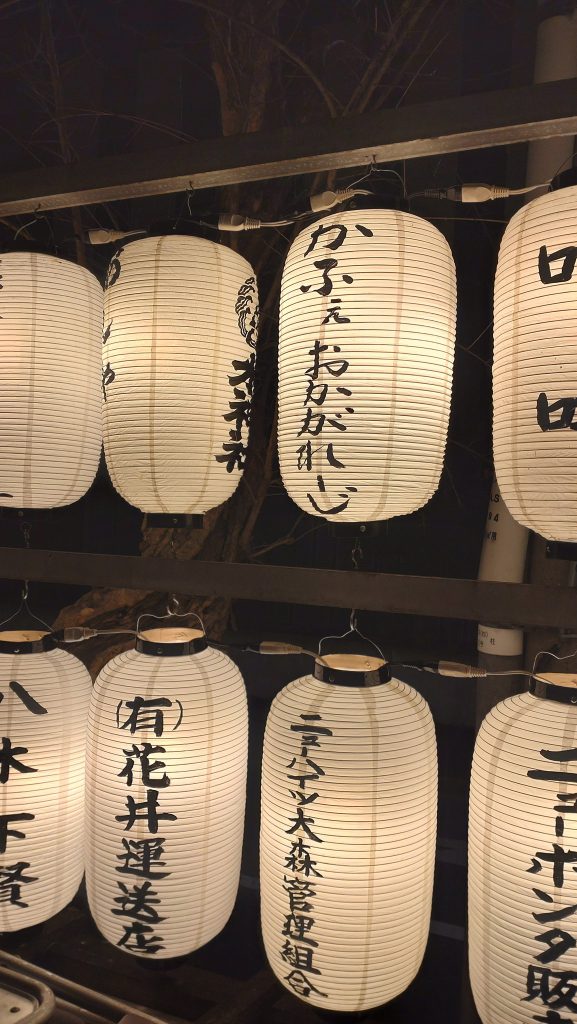 水神社
かふぇ おかがれじ
八木下賢
(有)花井運送店
ニューハイツ大森管理組合
ニューホンダ販